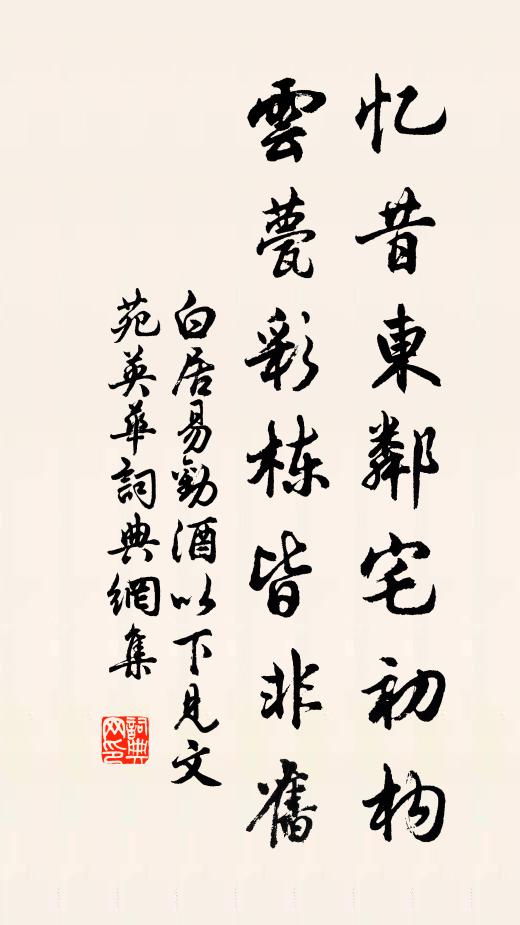 忆昔東鄰宅初构
雲甍彩栋皆非舊
白居易勸酒以下見文
苑英華詞典網集
詞典網印